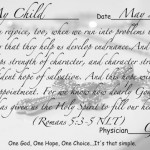 My Child Date May
rejoice, too, when we run into problems
that they help us develop endurance. And
strength of character, and character
hope of salvation. And this hope will
appointment. For we know how dearly
has given us the Holy Spirit to fill our
(Romans 5:3-5 NLT)
Physician G
One God, One Hope, One Choice...It's that simple.